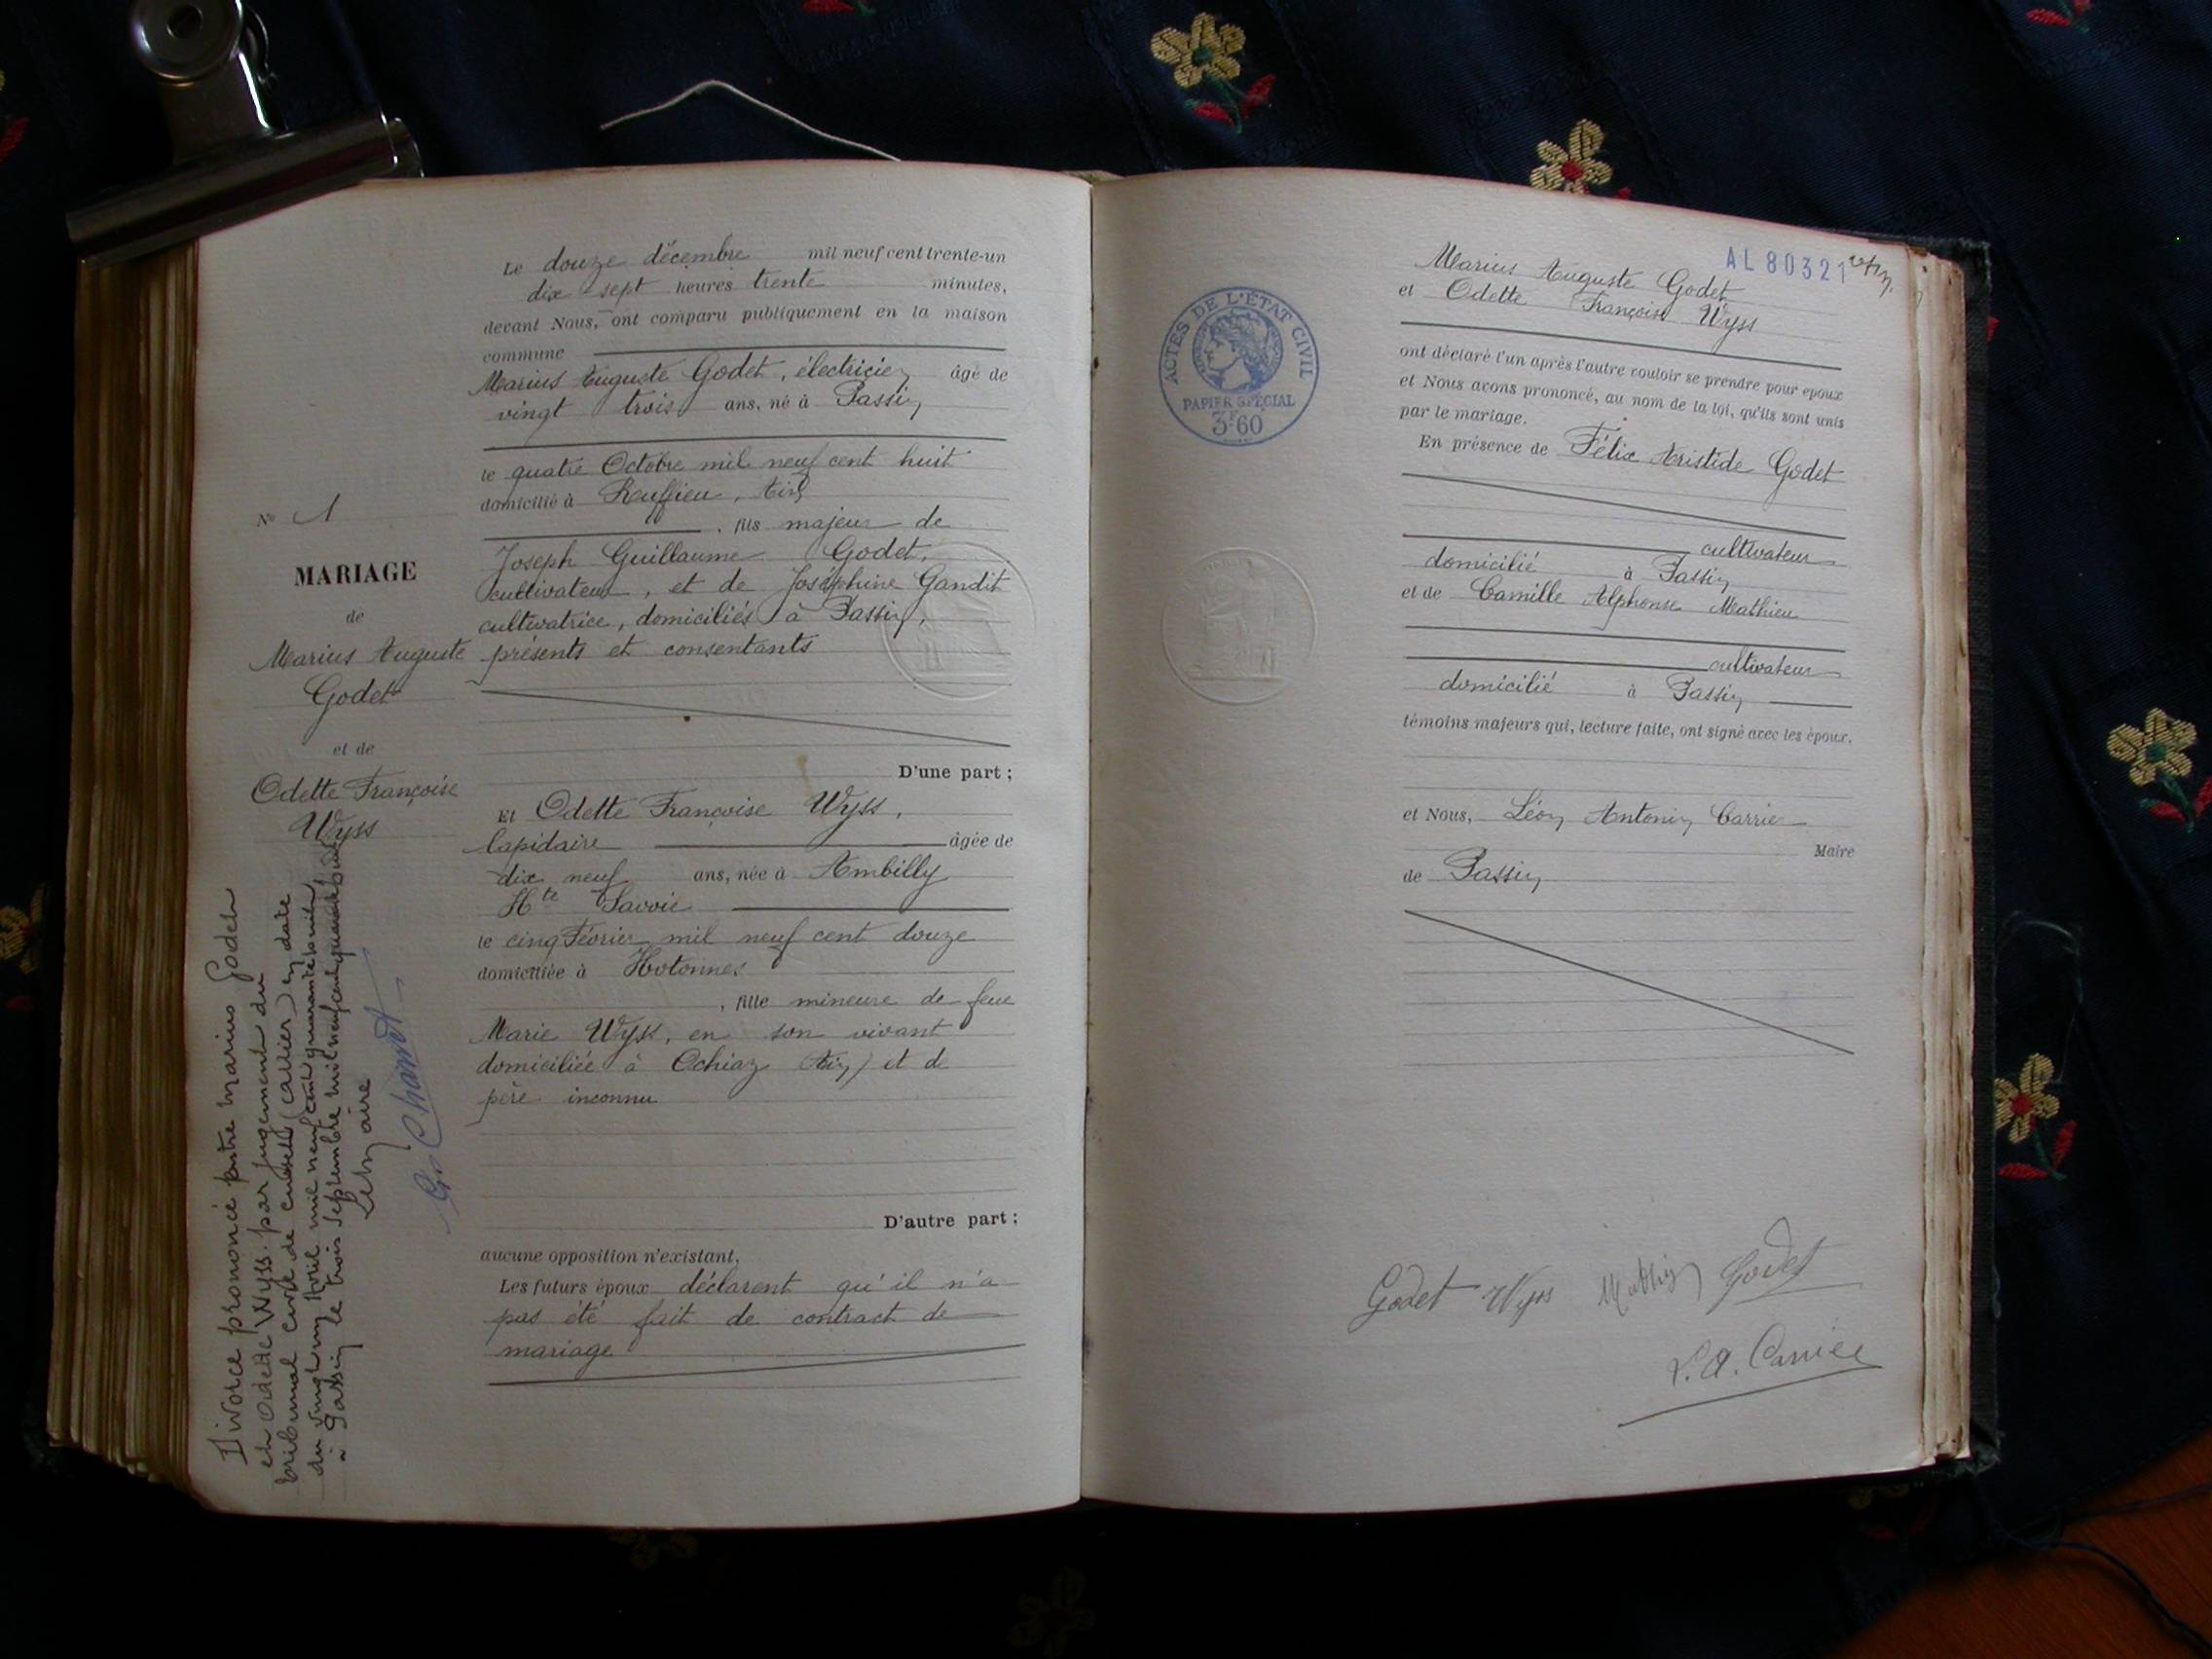 Le douze décembre mil neuf cent trente-un
dix-sept heures trente minutes,
devant Nous, ont comparu publiquement en la maison
commune
Marius Auguste Godet, électricien âgé de
vingt trois ans, né à Passin
le quatre Octobre mil neuf cent huit
domicilié à Ruffieu, Ain
, fils majeur de
Joseph Guillaume Godet,
cultivateur, et de Joséphine Gandit
cultivatrice, domiciliés à Passin,
présents et consentants
D'une part ;
Et Odette Françoise Wyss,
lapidaire âgée de
dix neuf ans, née à Ambilly
Hte Savoie
le cinq Février mil neuf cent douze
domiciliée à Hotonnes
, fille mineure de feue
Marie Wyss, en son vivant
domiciliée à Ochiaz (Ain) et de
père inconnu
D'autre part ;
aucune opposition n'existant,
Les futurs époux déclarent qu'il n'a
pas été fait de contract de
mariage
No 1
MARIAGE
de
Marius Auguste
Godet
et de
Odette Françoise
Wyss
Divorce prononcé entre Marius Godet
et Odette Wyss par jugement du
tribunal civil de en date
du vingt un Avril mil neuf cent quarante huit
à Passin le trois septembre mil neuf cent quarante huit
Le Maire
Chanut
AL 80321
Marius Auguste Godet
et Odette Françoise Wyss
ont déclaré l'un après l'autre vouloir se prendre pour époux
et Nous avons prononcé, au nom de la loi, qu'ils sont unis
par le mariage.
En présence de Félix Aristide Godet
cultivateur
domicilié à Passin
et de Camille Alphonse Mathieu
cultivateur
domicilié à Passin
témoins majeurs qui, lecture faite, ont signé avec les époux,
et Nous, Léon Antonin Carrier
Maire
de Passin
ACTES DE L'ÉTAT CIVIL
PAPIER SPÉCIAL
3F60
Godet Wyss Godet
L. A. Carrier